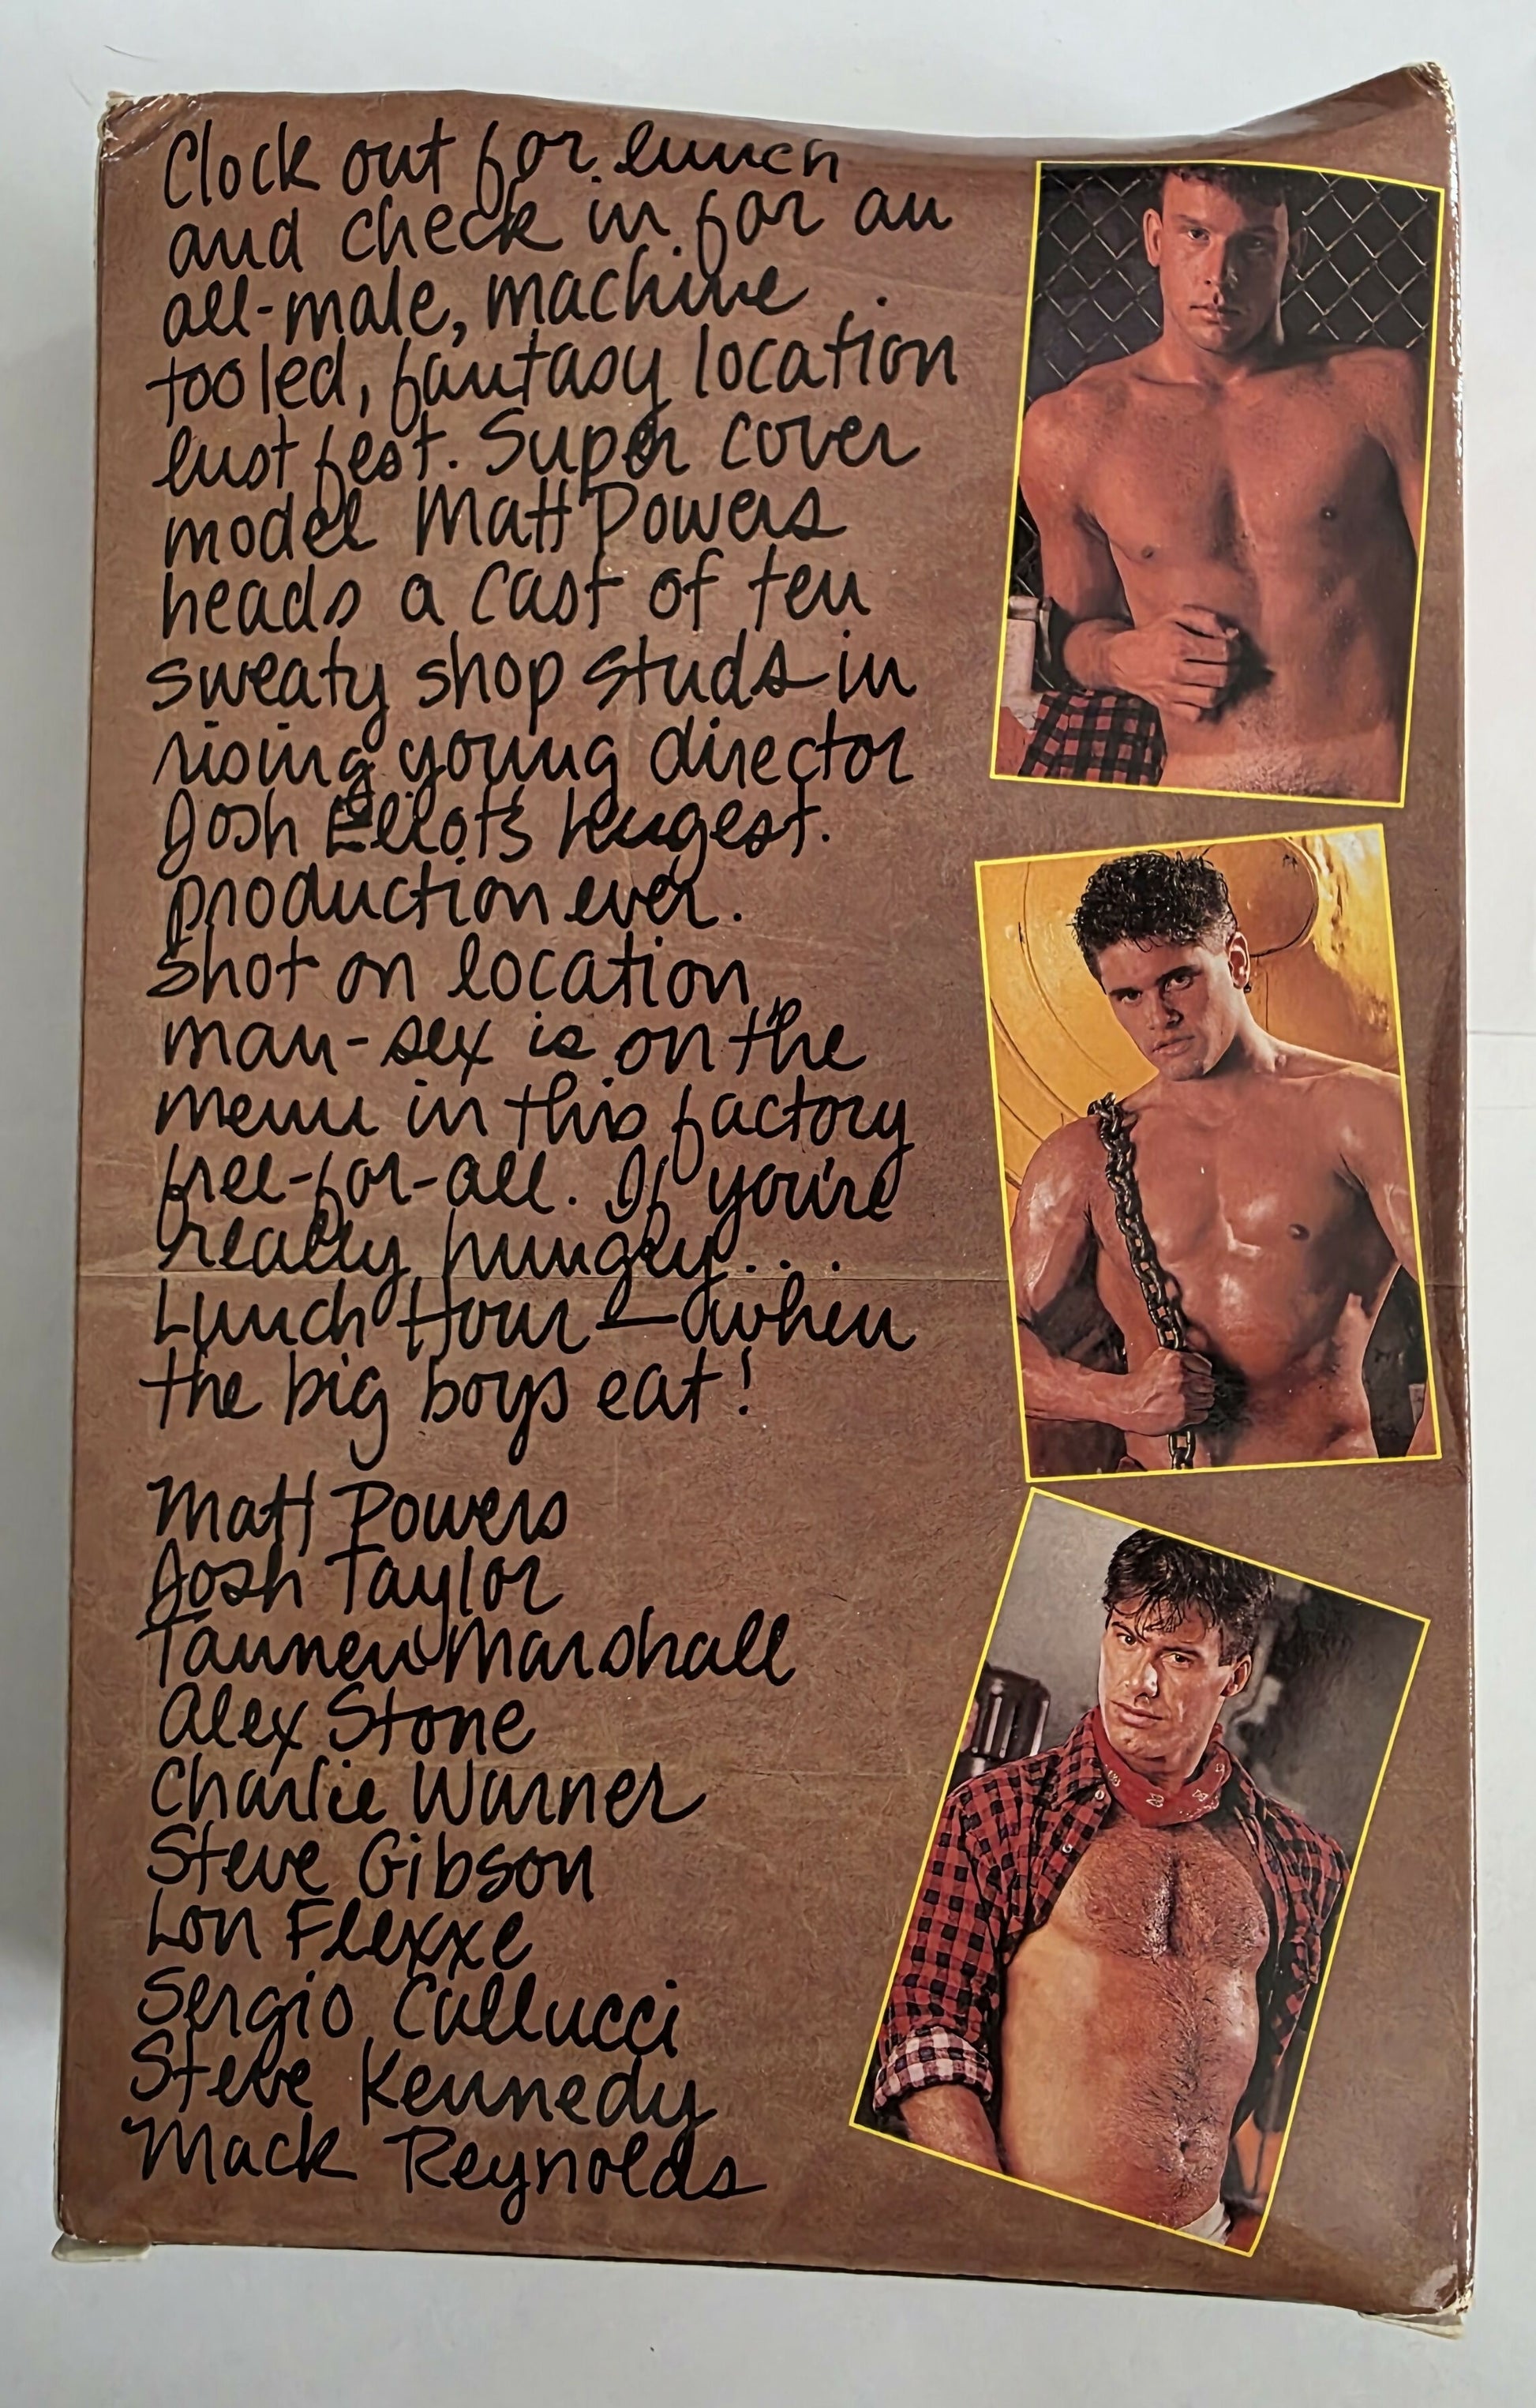 Clock out for lunch
and check in for an
all-male, machine
tooled, fantasy location
lust fest. Super cover
model Matt Powers
heads a cast of ten
sweaty shop studs in
rising young director
Josh Eliot's hugest
production ever.
Shot on location,
man-sex is on the
menu in this factory
free-for-all. If you're
really hungry...
Lunch Hour — when
the big boys eat!
Matt Powers
Josh Taylor
Tanner Marshall
Alex Stone
Charlie Warner
Steve Gibson
Lon Flexxe
Sergio Callucci
Steve Kennedy
Mack Reynolds